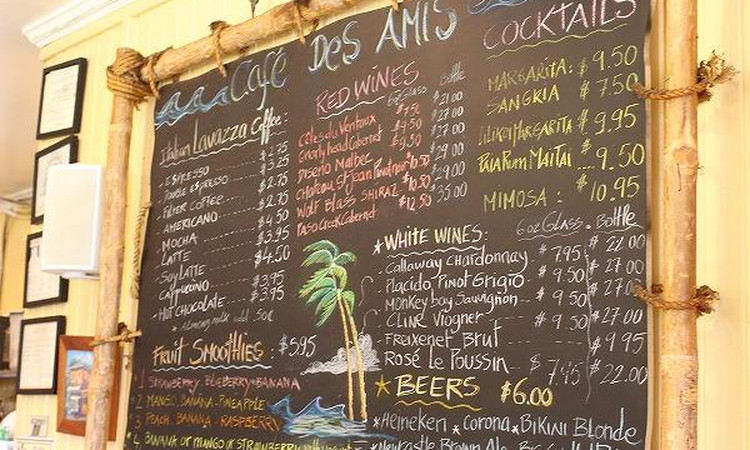 Café Des AMIS
Italian Lavazza Coffee:
ESPRESSO $2.75
Double Espresso $3.25
Filter Coffee $2.75
AMERICANO $2.75
MOCHA $4.50
LATTE $3.95
Soy LATTE $4.50
Cappuccino $3.95
HOT CHOCOLATE $3.95
* almond milk add .50¢
Fruit Smoothies: $5.95
1 STRAWBERRY. BLUEBERRY. BANANA
2 MANGO. BANANA. PINEAPPLE
3 PEACH. BANANA. RASPBERRY
4 BANANA or MANGO or STRAWBERRY
RED WINES
6oz Glass Bottle
Côtes du Ventoux
Gnarly head Cabernet
Diseño Malbec
Chateau St Jean Pinot noir
Wolf Blass SHIRAZ
Paso Creek Cabernet $12.50 35.00
COCKTAILS
MARGARITA: $9.50
SANGRIA $7.50
Lilikoi MARGARITA $9.95
Paia Rum Maitai $9.50
MIMOSA: $10.95
*WHITE WINES: 6oz Glass. Bottle
Callaway Chardonnay $7.95 $22.00
Placido Pinot Grigio $9.50 $27.00
Monkey bay Sauvignon $9.50 $27.00
Cline Viogner $9.50 $27.00
FREIXENET BRUT $9.95
Rosé Le Poussin $7.45 $22.00
*BEERS $6.00
*Heineken. corona. Bikini Blonde
*Newcastle Brown Ale